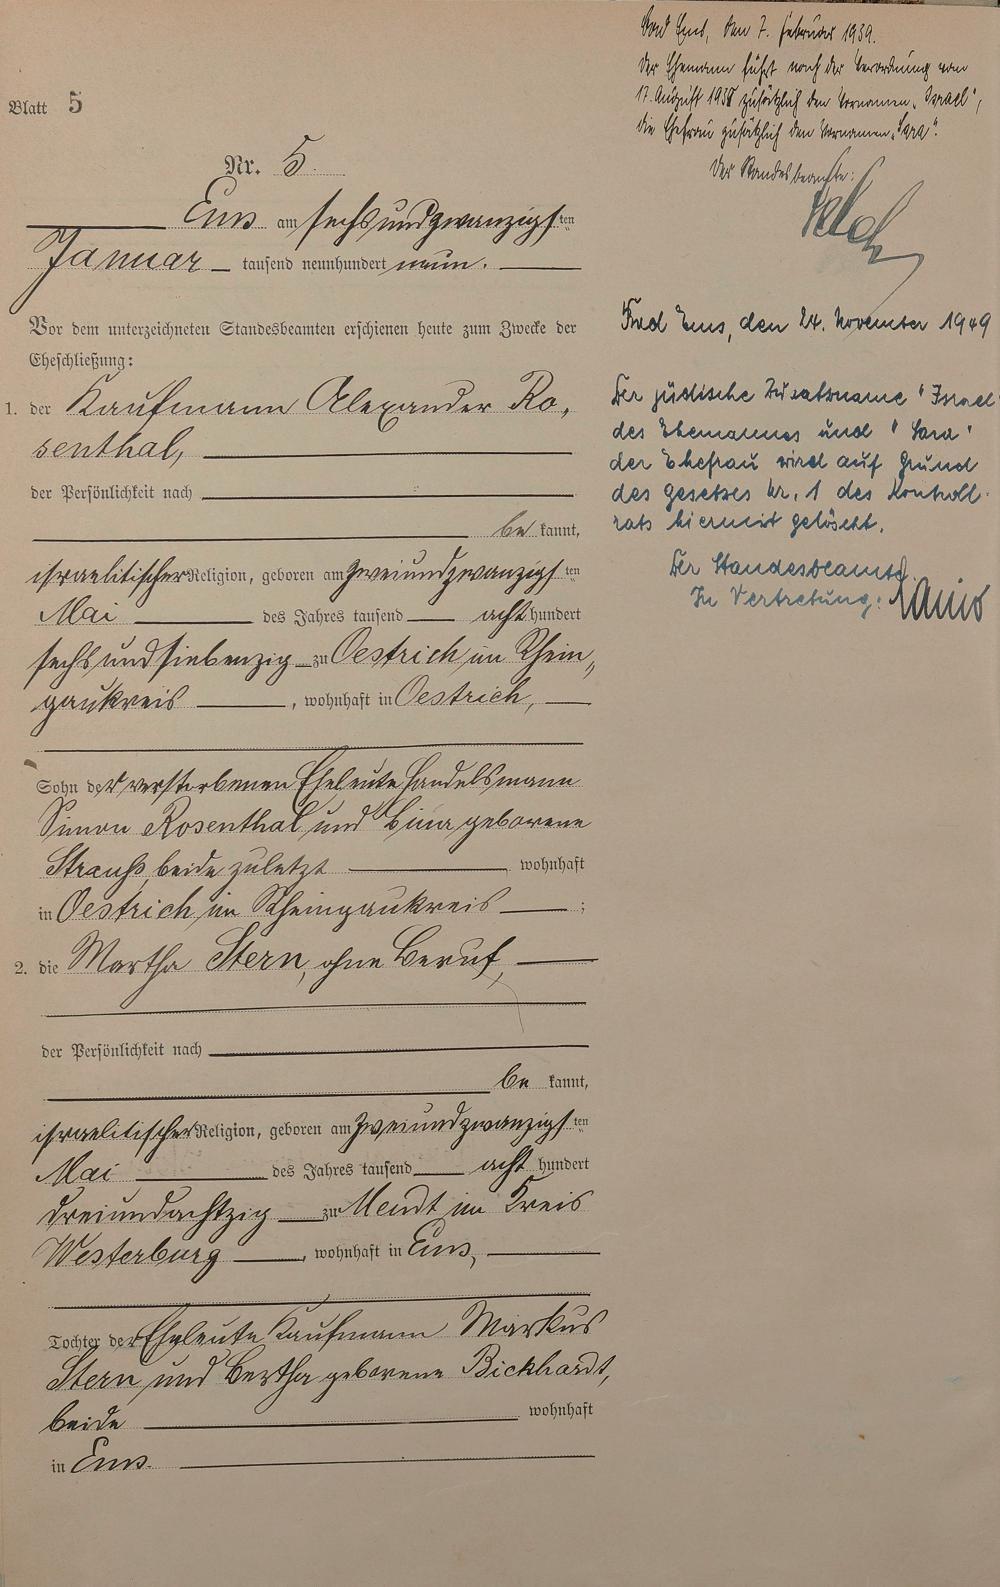 Blatt 5
Nr. 5.
Ems am sechsundzwanzigsten
Januar tausend neunhundert neun.
Vor dem unterzeichneten Standesbeamten erschienen heute zum Zwecke der
Eheschließung:
1. der Kaufmann Alexander Ro-
senthal,
der Persönlichkeit nach
be kannt,
israelitischer Religion, geboren am zweiundzwanzigsten
Mai des Jahres tausend acht hundert
sechsundsiebenzig zu Oestrich im Rhein-
gaukreis, wohnhaft in Oestrich,
Sohn der verstorbenen Eheleute Handelsmann
Simon Rosenthal und Lina geborene
Strauß, beide zuletzt wohnhaft
in Oestrich im Rheingaukreis;
2. die Martha Stern, ohne Beruf,
der Persönlichkeit nach
be kannt,
israelitischer Religion, geboren am zweiundzwanzigsten
Mai des Jahres tausend acht hundert
dreiundachtzig zu Meudt im Kreis
Westerburg, wohnhaft in Ems,
Tochter der Eheleute Kaufmann Markus
Stern und Bertha geborene Bickhardt,
beide wohnhaft
in Ems.
Bad Ems, den 7. Februar 1939.
Der Ehemann führt nach der Verordnung vom
17. August 1938 zusätzlich den Vornamen „Israel",
die Ehefrau zusätzlich den Vornamen „Sara".
Der Standesbeamte:
Bad Ems, den 24. November 1949
Der jüdische Zusatzname "Israel"
des Ehemannes und "Sara"
der Ehefrau wird auf Grund
des Gesetzes Nr. 1 des Kontroll-
rats hiermit gelöscht.
Der Standesbeamte
In Vertretung: